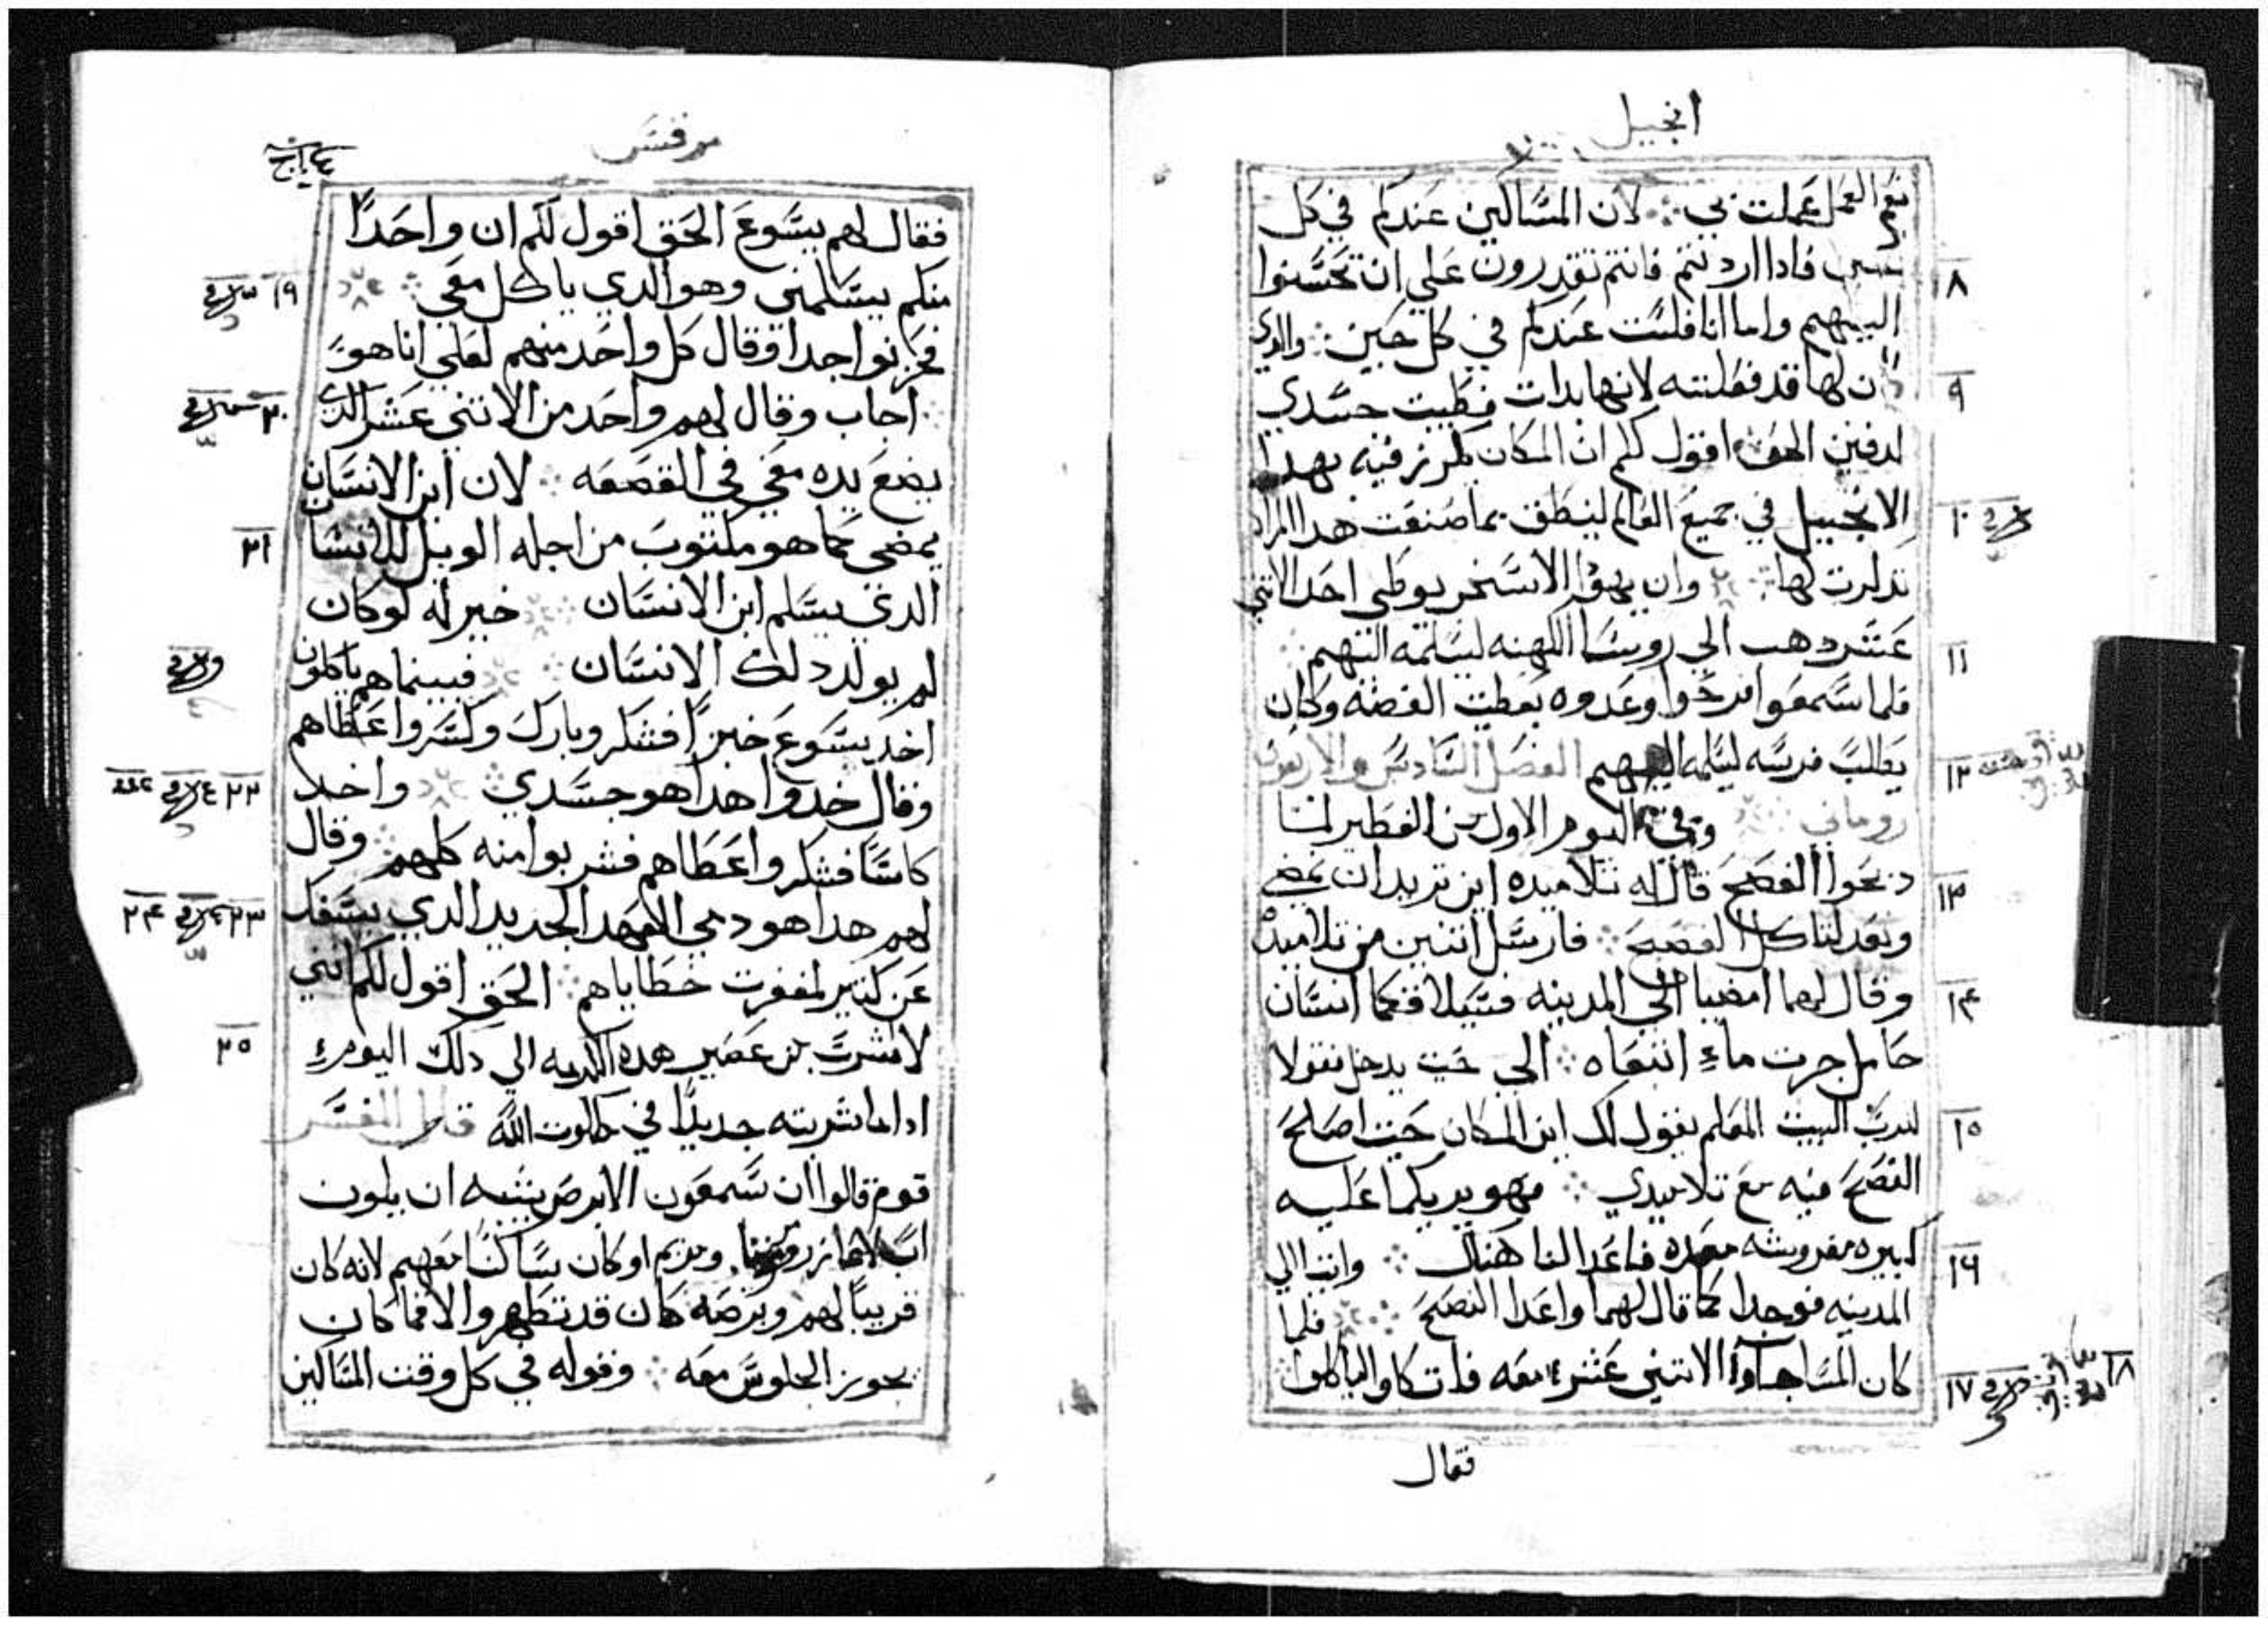 انجيل
نعم العمل عملت بي ∴ لان المساكين عندكم في كل
حين فادا اردتم فانتم تقدرون علي ان تحسنوا
اليهم واما انا فلست عندكم في كل حين ∴ والدي
كان لها قد فعلته لانها بدات فطيبت جسدي
لدفين الحق اقول لكم ان المكان يكرز فيه بهدا
الانجيل في جميع العالم لينطق بما صنعت هدا المراه
تدكرت لها ∴ وان يهودا الاسخريوطي احد الاثني
عشر دهب الي روسا الكهنه ليسلمه اليهم ∴
فلما سمعوا فرحوا وعدوه بعطيت الفضه وكان
يطلب فرسه ليسلمه اليهم الفصل السادس والاربعون
روماني وفي اليوم الاول من الفطير لما
دبحوا الفصح قال له تلاميده اين تريد ان نمضي
ونعد لناكل الفصح ∴ فارسل اتنين من تلاميده
وقال لهما امضيا الي المدينه فسيلاقكما انسان
حامل جرت ماء اتبعاه ∴ الي حيت يدخل فقولا
لرب البيت المعلم يقول لك اين المكان حيت اصلح
الفصح فيه مع تلاميدي ∴ فهو يريكما عليه
كبيره مفروشه معده فاعدا لنا هناك ∴ واتيا الي
المدينه فوجدا كما قال لهما واعدا الفصح ∴ فلما
كان المسا جا والاتني عشر معه فاتكاوا لياكلوا ∴
فقال
٨
٩
١٠
١١
١٢
١٣
١٤
١٥
١٦
١٧
١٨
مرقس
فقال لهم يسوع الحق اقول لكم ان واحدًا
منكم يسلمني وهو الدي ياكل معي ∴
فحزنوا جدا وقال كل واحد منهم لعلي انا هو
اجاب وقال لهم واحد من الاتني عشر الدي
يضع يده معي في القصعه ∴ لان ابن الانسان
يمضي كما هو مكتوب من اجله الويل للانسا
الدي يسلم ابن الانسان ∴ خير له لو كان
لم يولد دلك الانسان ∴ فبينما هم ياكلون
اخد يسوع خبزًا فشكر وبارك وكسر واعطاهم
وقال خدوا هدا هو جسدي ∴ واخد
كاسًا فشكر واعطاهم فشربوا منه كلهم ∴ وقال
لهم هدا هو دمي العهد الجديد الدي يسفك
عن كتير لمغفرت خطاياهم ∴ الحق اقول لكم انني
لا اشرب من عصير هده الكرمه الي دلك اليوم
ادا ما شربته جديدًا في ملكوت الله قال المفسر
قوم قالوا ان سمعون الابرص يشبه ان يكون
ومريم او كان ساكنًا معهم لانه كان
قريبًا لهم وبرصه كان قد تطهر والا فما كان
يجوز الجلوس معه ∴ وقوله في كل وقت المساكين
١٩
٢٠
٢١
٢٢
٢٣
٢٤
٢٥